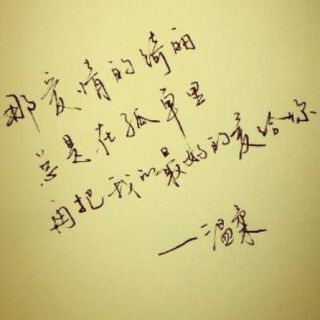 那爱情的绮丽
总是在孤单里
再把我的最好的爱给你
—温柔